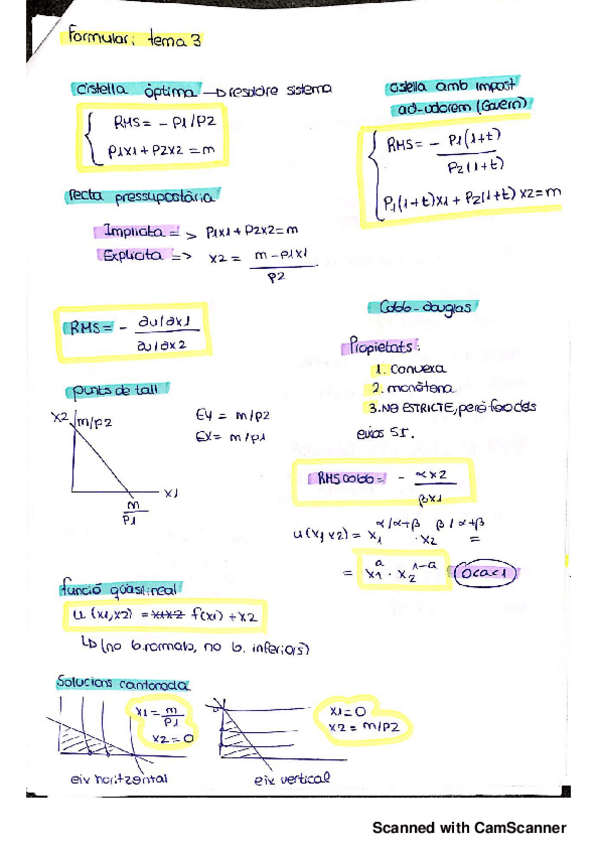 Formulari tema 3
Cistella òptima → resoldre sistema
RMS = - P1/P2
P1x1 + P2x2 = m
Cistella amb impost
ad-valorem (Govern)
RMS = - P1(1+t) / P2(1+t)
P1(1+t)x1 + P2(1+t)x2 = m
recta pressupostària
Implícita => P1x1 + P2x2 = m
Explícita => x2 = m - p1x1 / p2
RMS = - ∂u/∂x1 / ∂u/∂x2
Cobb-douglas
Propietats:
1. convexa
2. monòtona
3. NO ESTRICTE, però
eixos SI.
punts de tall
x2
m/p2
x1
m/P1
EY = m/p2
EX = m/p1
RMS cobb = - αx2 / βx1
u(x1,x2) = x1^α/α+β · x2^β/α+β =
= x1^a · x2^1-a
0<a<1
funció quasilineal
u(x1,x2) = f(x1) + x2
↳ (no b.normals, no b. inferiors)
Solucions cantonada
x1 = m/P1
x2 = 0
eix horitzontal
x1 = 0
x2 = m/P2
eix vertical
Scanned with CamScanner